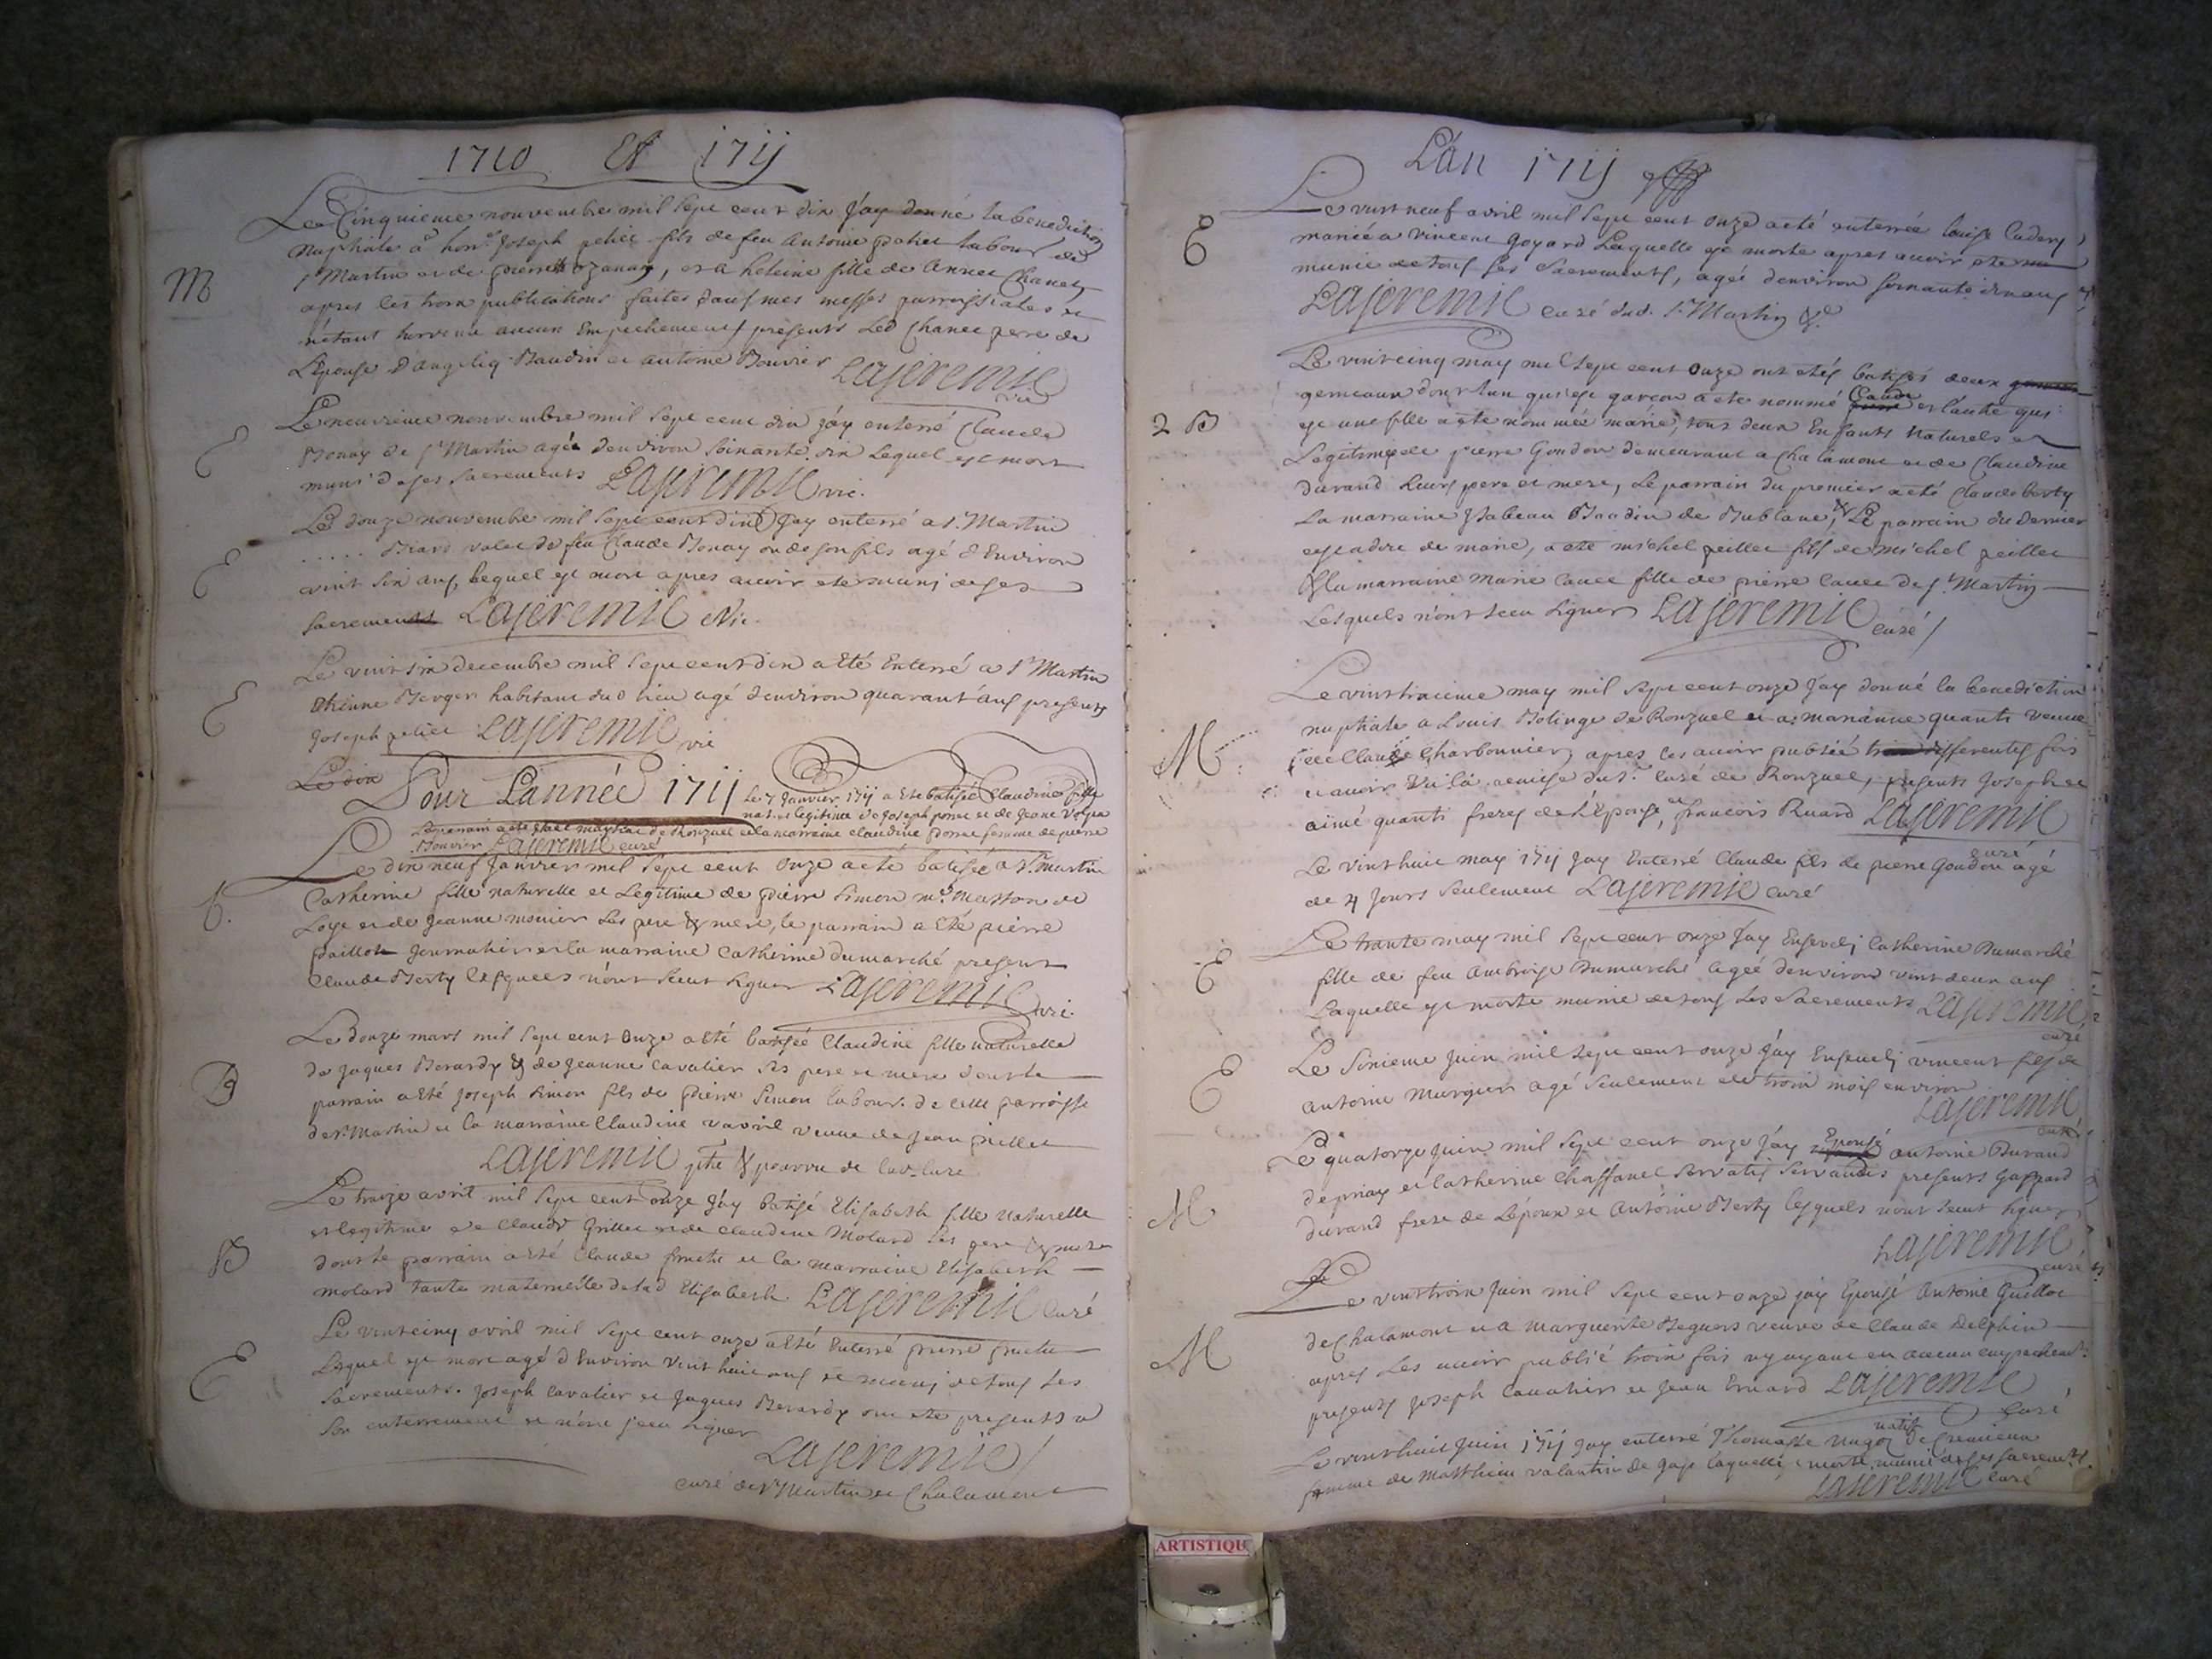 1710 Et 1711
Le Cinquieme nouvembre mil sept cent dix j'ay donné la benediction
nuptiale a hon. Joseph peliée fils de feu Antoine labour de
St Martin et de pierrette ozanan, et a heleine fille de Chanet
apres les trois publications faites dans mes messes parroissiales et
n'etant survenu aucun Empechement presents Led Chanee pere de
L'epouse D'angeliq Baudin et antoine Bouvier Lajeremie
vic
M
Le neuvieme nouvembre mil sept cent dix j'ay enterré Claude
Monay de St Martin agé denviron soixante dix Lequel est mort
muni de ses sacrements Lajeremie vic.
E
Le douze nouvembre mil sept cent dix j'ay enterré a St Martin
.... Biard valet de feu Claude Monay ou de son fils agé d'Environ
vint six ans, lequel est mort apres avoir ete muni de ses
sacrements Lajeremie Vic.
E
Le vint six decembre mil sept cent dix a Eté Enterré a St Martin
Etienne Berger habitant dud lieu agé d'environ quarant'ans presents
Joseph peliée Lajeremie vic
E
Le dix
Pour L'année 1711 Le 7 Janvier 1711 a Ete batisée Claudine fille
nat. et legitime de Joseph ponce et de Jeane
Le parrain a ete de Ronzuel et la marraine claudine ponce femme de pierre
Bouvier Lajeremie curé
Le dix neuf Janvier mil sept cent onze a eté batisée a St Martin
Catherine fille naturelle et Legitime de pierre Simon md. Masson de
Loye et de Jeanne monier ses pere & mere, le parrain a Eté pierre
paillot journalier et la marraine Catherine dumarché present
Claude Berty Lesquels n'ont sceut signer Lajeremie vic.
b.
Le douze mars mil sept cent onze a Eté batisée Claudine fille naturelle
de Jaques Berardy & de Jeanne Cavalier ses pere et mere dont le
parrain a Eté Joseph Simon fils de pierre Simon labour. de cette parroisse
de St Martin et la marraine Claudine vavril veuve de Jean piellet
Lajeremie ptre & pourvu de lad. cure
B
Le traize avril mil sept cent onze j'ay batisé Elisabeth fille naturelle
et legitime de Claude Grillet et de Claudine Molard ses pere & mere
dont le parrain a Eté Claude fructu et la marraine Elisabeth
molard tante maternelle de lad Elisabeth Lajeremie Curé
B
Le vint cinq avril mil sept cent onze a Eté Enterré pierre fructu
Lequel est mort agé d'Environ vint huit ans et muni de tous ses
sacrements. Joseph Cavalier et Jaques Berardy ont ete presents a
son enterrement et n'ont sceu signer
Lajeremie
curé de St Martin et Chalamont
E
L'an 1711
Le vint neuf avril mil sept cent onze a eté enterrée louise
mariée a vincent Goyard Laquelle est morte apres avoir ete
munie de tous ses sacrements, agée denviron soixante dix ans
Lajeremie curé dud. St Martin &c
E
Le vint cinq may mil sept cent onze ont etés batisés deux
gemeaux dont l'un qui est garcon a ete nommé Claude et l'autre qui
est une fille a ete nommée marie, tous deux Enfants naturels et
Legitimes de pierre Goudon demeurant a Chalamont et de Claudine
durand leurs pere et mere, Le parrain du premier a eté Claude berty
La marraine ysabeau Baudin de Bublane, & Le parrain du dernier
c'est a dire de marie, a ete michel peillet fils de michel peillet
& la marraine marie cance fille de pierre cance de St Martin
Lesquels n'ont sceu signer Lajeremie curé
2 B
Le vint traizieme may mil sept cent onze j'ay donné la benediction
nuptiale a Louis Bolinge de Ronzuel et a marianne quanti veuve
de Claude Charbonnier, apres les avoir publié trois differentes fois
et avoir Vu la remise du Sr. Curé de Ronzuel, presents Joseph et
aimé quanti freres de l'Epouse, et francois Ruard Lajeremie
curé
M
Le vint huit may 1711 j'ay Enterré Claude fils de pierre Goudon agé
de 4 jours seulement Lajeremie curé
Le trante may mil sept cent onze j'ay Enseveli Catherine Dumarché
fille de feu Ambroise Dumarché agée denviron vint deux ans
Laquelle est morte munie de tous ses sacrements Lajeremie
curé
E
Le sixieme juin mil sept cent onze j'ay Enseveli vincent fils de
antoine Murgier agé seulement de trois mois environ
Lajeremie
curé
E
Le quatorze juin mil sept cent onze j'ay Epousé antoine Durand
de priay et Catherine Chaffanel servants presents Gaspard
durand frere de L'epoux et Antoine Berty lesquels n'ont sceut signer
Lajeremie
curé
M
Le vint trois juin mil sept cent onze j'ay Epousé Antoine Guillot
de Chalamont et a marguerite Beguers veuve de Claude Delphin
apres Les avoir publié trois fois n'y ayant eu aucun empechemt.
presents Joseph Cavalier et Jean Ernard Lajeremie
Curé
M
Le vint huit juin 1711 j'ay enterré Thomasse natif de Cremieux
femme de Matthieu valantin de laquelle morte munie de ses sacremts.
Lajeremie curé
ARTISTIQU